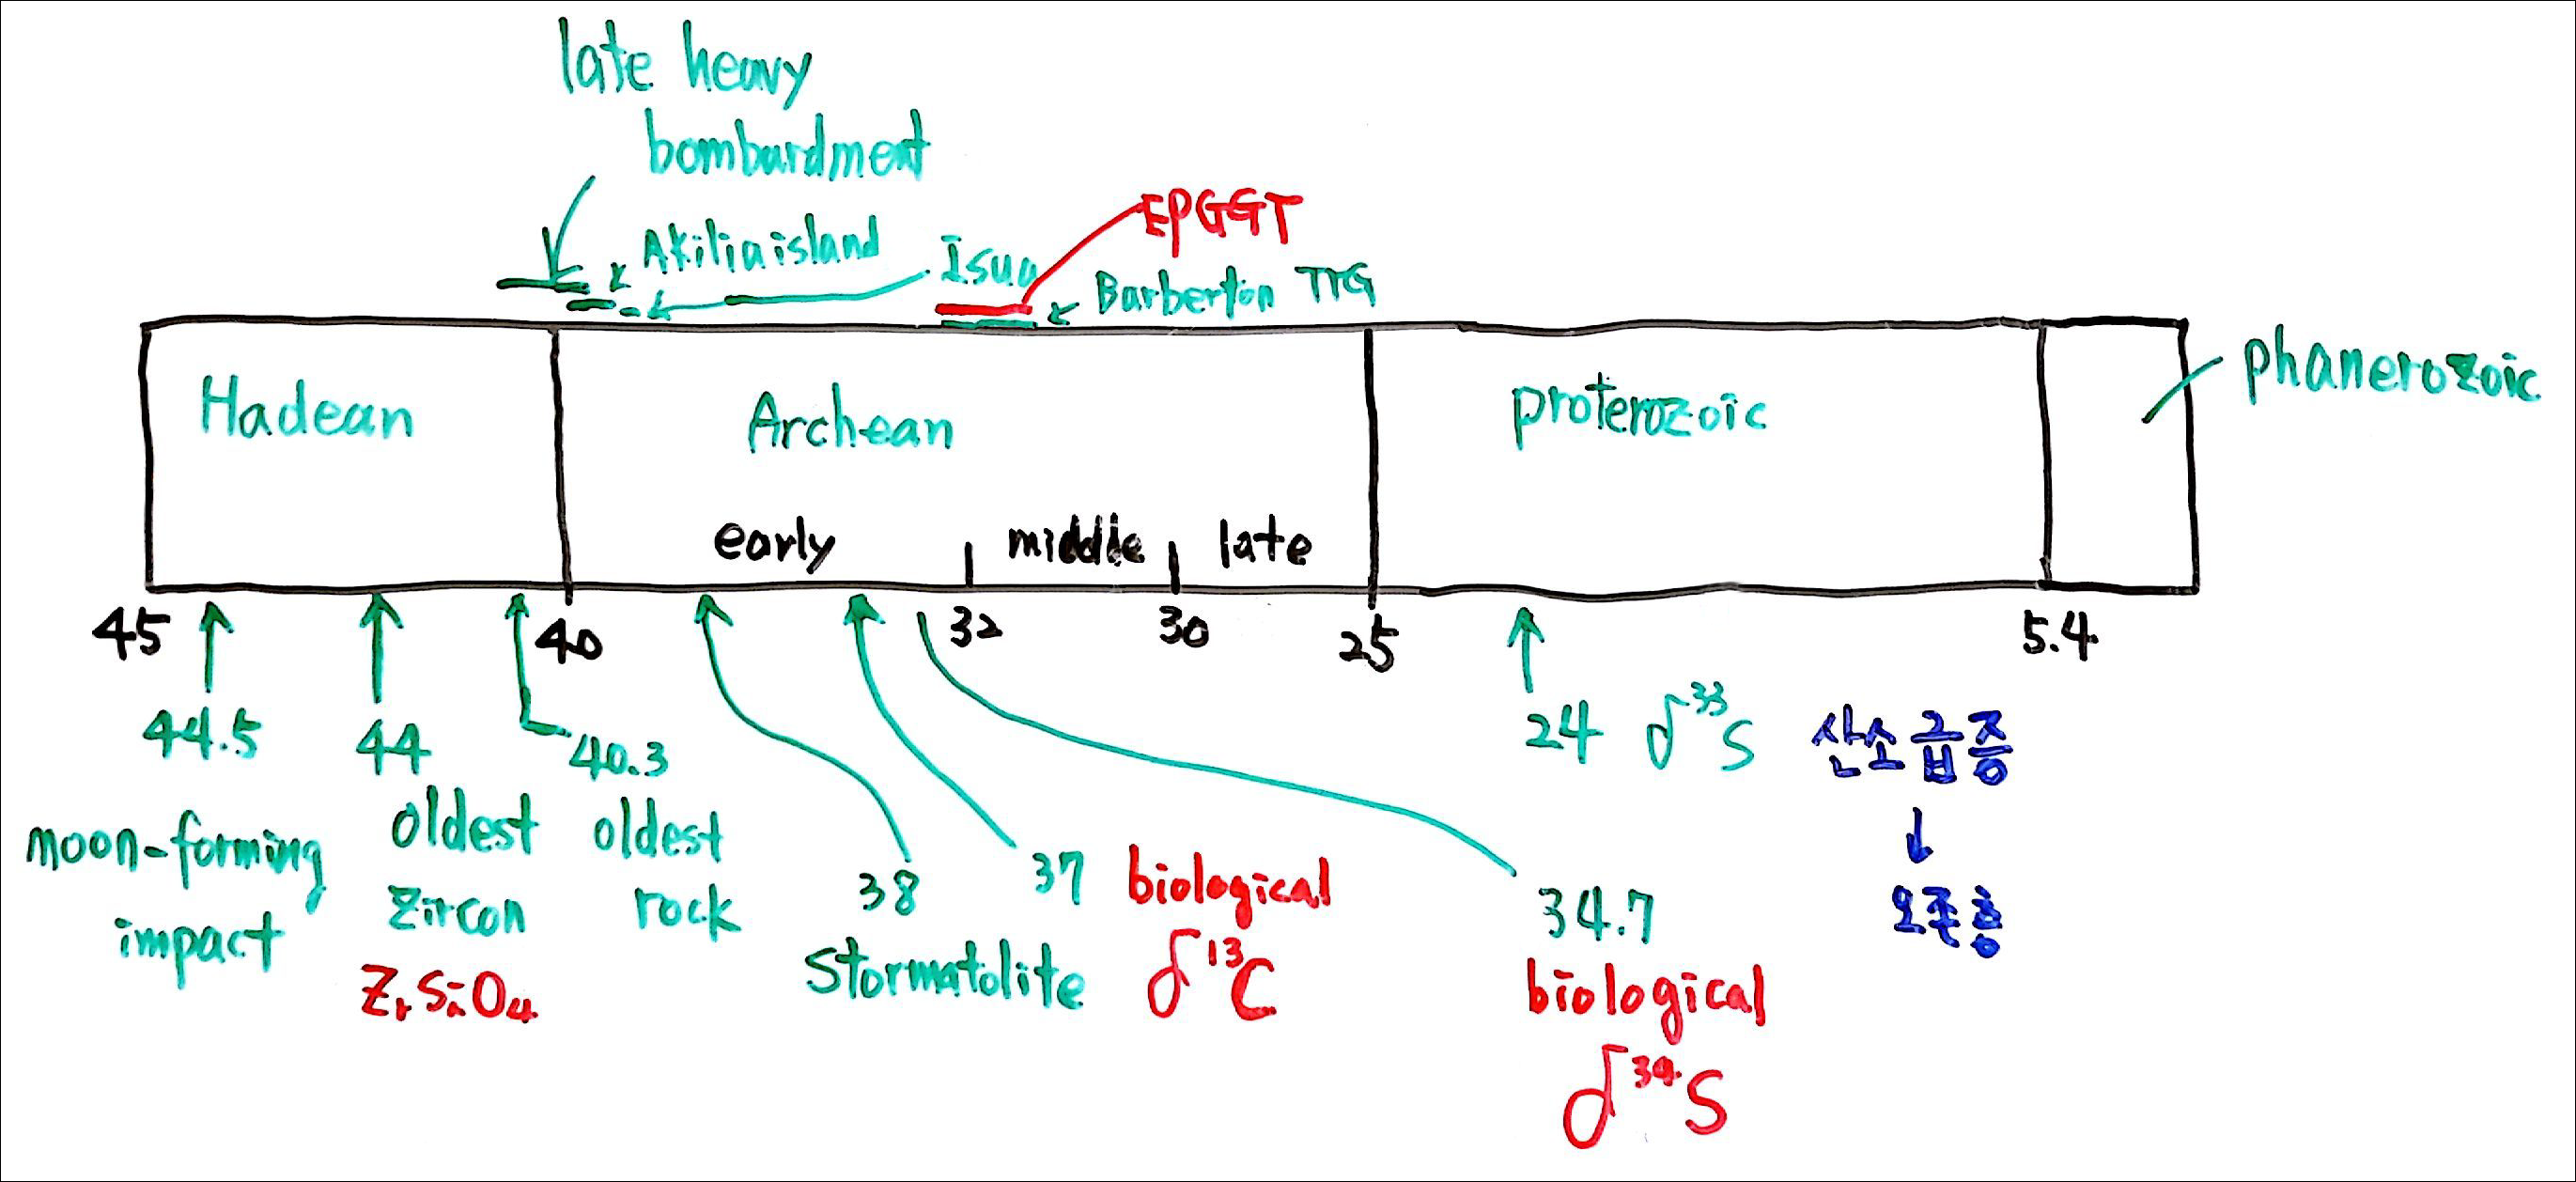 late heavy
bombardment
EPGGT
Akilia island
Isua
Barberton TTG
Hadean
Archean
proterozoic
phanerozoic
early
middle
late
45
40
32
30
25
5.4
44.5
moon-forming
impact
44
oldest
zircon
ZrSiO4
40.3
oldest
rock
38
stormatolite
37
biological
δ13C
34.7
biological
δ34S
24 δ33S
산소 급증
↓
오존층